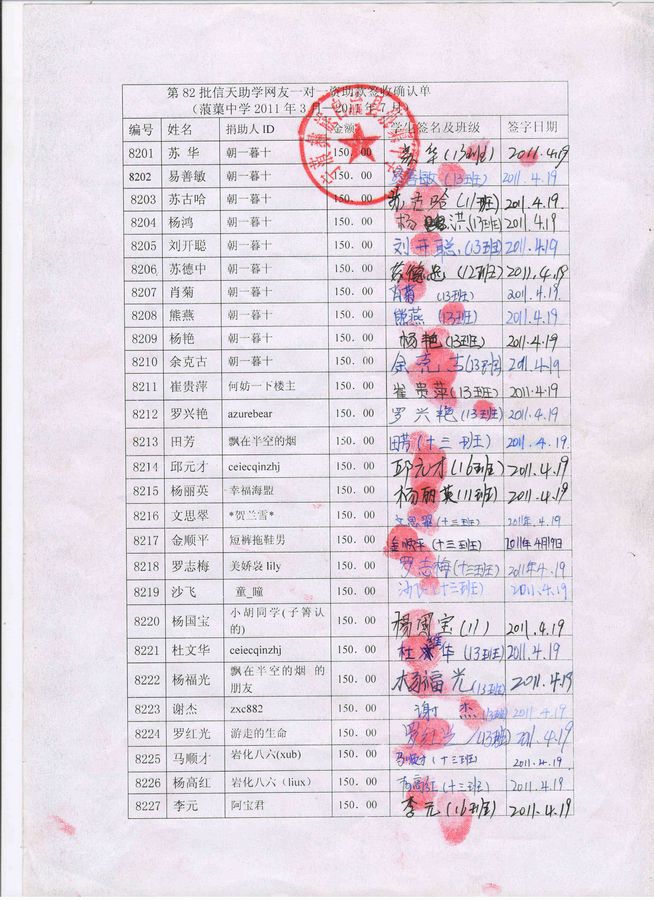 第 82 批信天助学网友一对一资助款签收确认单
(蒗蕖中学 2011 年 3 月—2011 年 7 月)
编号 姓名 捐助人 ID 金额 学生签名及班级 签字日期
8201 苏 华 朝一暮十 150.00 苏华(13班) 2011.4.19
8202 易善敏 朝一暮十 150.00 易善敏(13班) 2011.4.19
8203 苏古哈 朝一暮十 150.00 苏古哈(11班) 2011.4.19.
8204 杨鸿 朝一暮十 150.00 杨洪(13班) 2011.4.19
8205 刘开聪 朝一暮十 150.00 刘开聪(13班) 2011.4.19
8206 苏德中 朝一暮十 150.00 苏德忠(12班) 2011.4.19
8207 肖菊 朝一暮十 150.00 肖菊(13班) 2011.4.19.
8208 熊燕 朝一暮十 150.00 熊燕(13班) 2011.4.19.
8209 杨艳 朝一暮十 150.00 杨艳(13班) 2011.4.19
8210 余克古 朝一暮十 150.00 (13班) 2011.4.19
8211 崔贵萍 何妨一下楼主 150.00 崔贵萍(13班) 2011.4.19
8212 罗兴艳 azurebear 150.00 罗兴艳(13班) 2011.4.19
8213 田芳 飘在半空的烟 150.00 田芳(十三班) 2011.4.19.
8214 邱元才 ceiecqinzhj 150.00 邱元才(16班) 2011.4.19
8215 杨丽英 幸福海盟 150.00 杨丽英(11班) 2011.4.19
8216 文思翠 *贺兰雪* 150.00 文思翠(十三班) 2011年.4.19
8217 金顺平 短裤拖鞋男 150.00 金顺平(十三班) 2011年4月19日
8218 罗志梅 美娇袋 lily 150.00 罗志梅(十三班) 2011年4.19
8219 沙飞 童_瞳 150.00 沙飞(十三班) 2011.4.19
8220 杨国宝 小胡同学(子箐认 150.00 杨国宝(11) 2011.4.19
的)
8221 杜文华 ceiecqinzhj 150.00 杜华(13班) 2011.4.19
8222 杨福光 飘在半空的烟 的 150.00 杨福光(13班) 2011.4.19
朋友
8223 谢杰 zxc882 150.00 谢杰(13班) 2011.4.19
8224 罗红光 游走的生命 150.00 罗红光(13班) 2011.4.19
8225 马顺才 岩化八六(xub) 150.00 马顺才(十三班) 2011.4.19.
8226 杨高红 岩化八六（liux） 150.00 杨高红(十三班) 2011.4.19
8227 李元 阿宝君 150.00 李元(16班) 2011.4.19